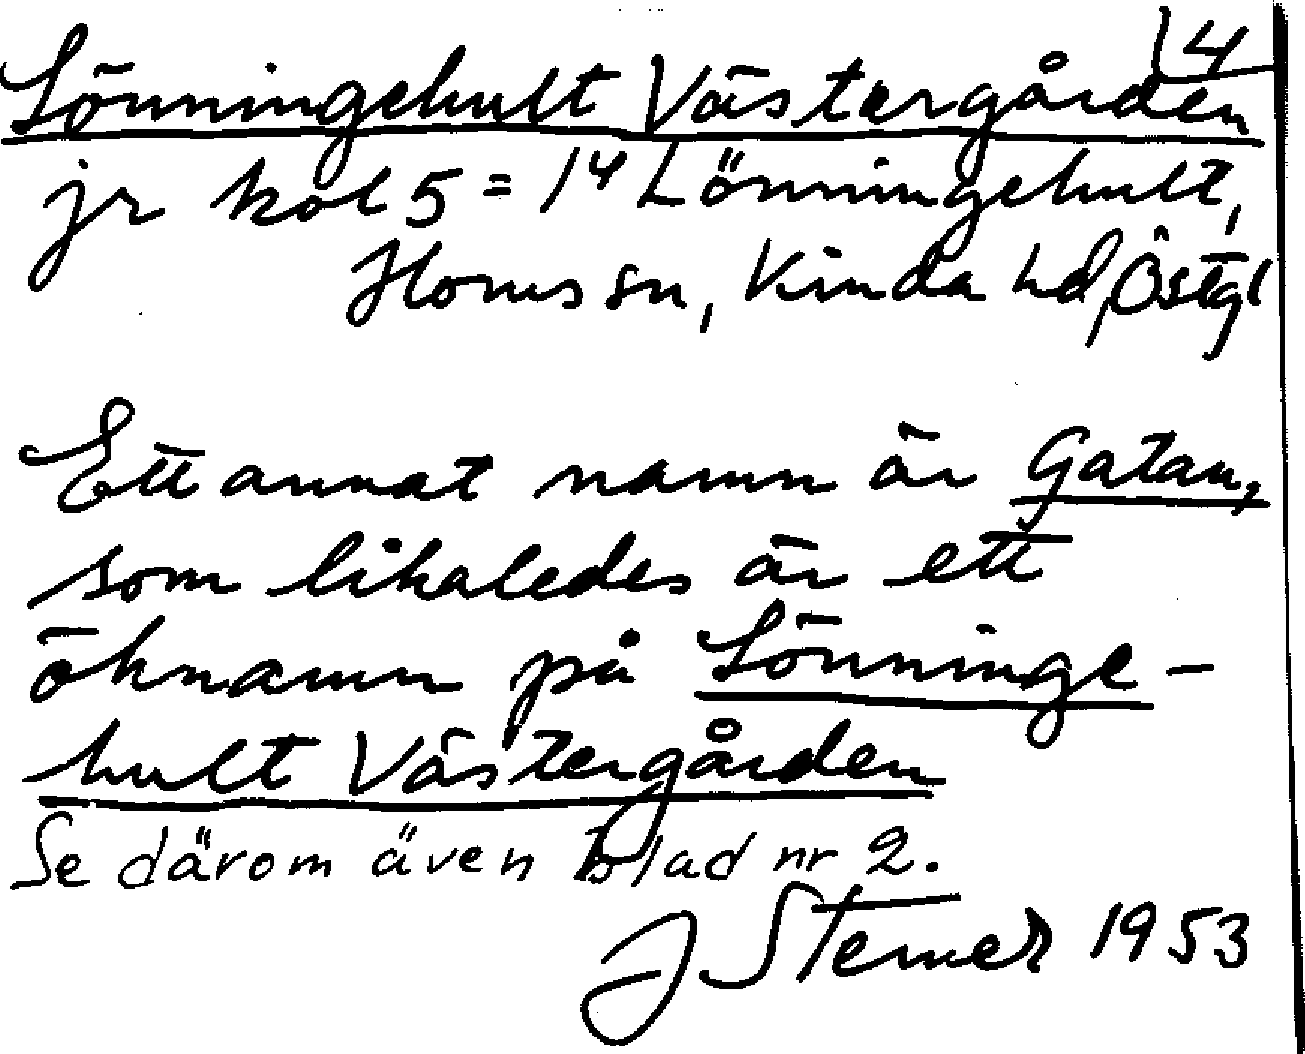 14
Lönningehult Västergården
jr kol 5 = 1⁴ Lönningehult,
Horns sn, Kinda hd, Östgl
Ett annat namn är Gatan,
som likaledes är ett
öknamn på Lönninge-
hult Västergården
Se därom även blad nr 2.
J Sterner 1953